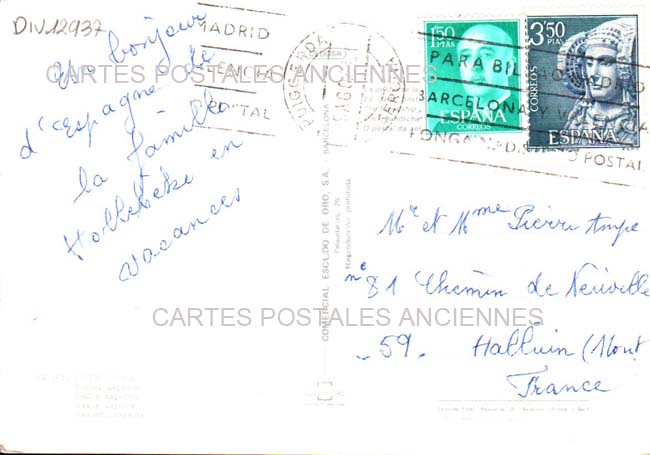 DIV12937
Un bonjour
d'Espagne de
la famille
Hollebeke en
vacances
MADRID
POSTAL
PUIGCERDA
AGO
1'50
PTAS
ESPAÑA
CORREOS
3'50
PTAS
CORREOS
ESPAÑA
PARA BIL
BARCELONA
VALENCIA
PONGA Nº DIS
O POSTAL
CARTES POSTALES ANCIENNES
COMERCIAL ESCUDO DE ORO, S.A. BARCELONA
Palaudarias, 26
Reproducción prohibida
Mr et Mme Pierre Ampe
nº 81 Chemin de Neuville
- 59. Halluin (Mont
France
CARTES POSTALES ANCIENNES